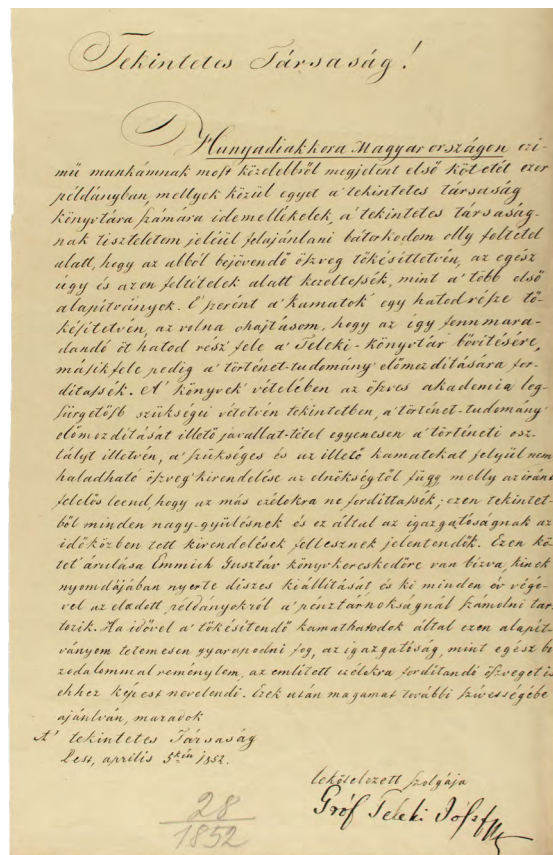 Tekintetes Társaság!
A' Hunyadiak kora Magyarországon czi-
mű munkámnak most közelebbről megjelent első kötetét ezer
példányban, mellyek közül egyet a' tekintetes társaság
könyvtára számára idemellékelek, a' tekintetes társaság-
nak tiszteletem jeléül felajánlani bátorkodom olly feltétel
alatt, hogy az abból bejövendő öszveg tőkésíttetvén, az egész
úgy és azon feltételek alatt kezeltessék, mint a' több első
alapítványok. E' szerént a' kamatok egy hatod része tő-
késítetvén, az volna ohajtásom, hogy az így fennmara-
dandó öt hatod rész fele a' Teleki-könyvtár bővitésére,
másik fele pedig a' történet-tudomány előmozdítására for-
díttassék. A' könyvek vételében az öszves akademia leg-
sürgetősb szükségei vétetvén tekintetben, a' történet-tudomány
előmozdítását illető javallat-tétel egyenesen a' történeti osz-
tályt illetvén, a' szükséges és az illető kamatokat felyül nem
haladható öszveg kirendelése az elnökségtől függ, melly az iránt
felelős leend, hogy az más czélokra ne fordíttassék; ezen tekintet-
ből minden nagy-gyülésnek és ez által az igazgatóságnak az
időközben tett kirendelések fellesznek jelentendők. Ezen kö-
tet árulása Emmich Gusztáv könyvkereskedőre van bizva, kinek
nyomdájában nyerte díszes kiállítását és ki minden év végé-
vel az eladott példányokról a' pénztárnokságnál számolni tar-
tozik. Ha idővel a' tőkésítendő kamathatodok által ezen alapít-
ványom tetemesen gyarapodni fog, az igazgatóság, mint egész bi-
zodalommal reménylem, az említett czélokra fordítandó öszveget is
ehhez képest nevelendi. Ezek után magamat további szívességébe
ajánlván, maradok
A' tekintetes Társaság
Pest, aprilis 5kén 1852.
lekötelezett szolgája
Gróf Teleki József
28
1852